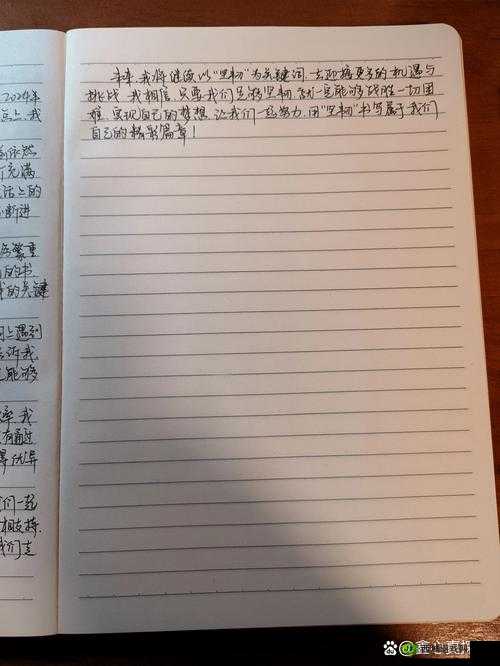 2024年
点上 我
依然
充满
活上的
断进
繁重
的书
我的关键
上遇到
告诉我
能够
我
有通过
优异
们一起
相支持
我们走
未来 我将继续以“坚韧”为关键词 去迎接更多的机遇与
挑战 我相信 只要我们足够坚韧 就一定能够战胜一切困
难 实现自己的梦想 让我们一起努力 用“坚韧”书写属于我们
自己的精彩篇章！